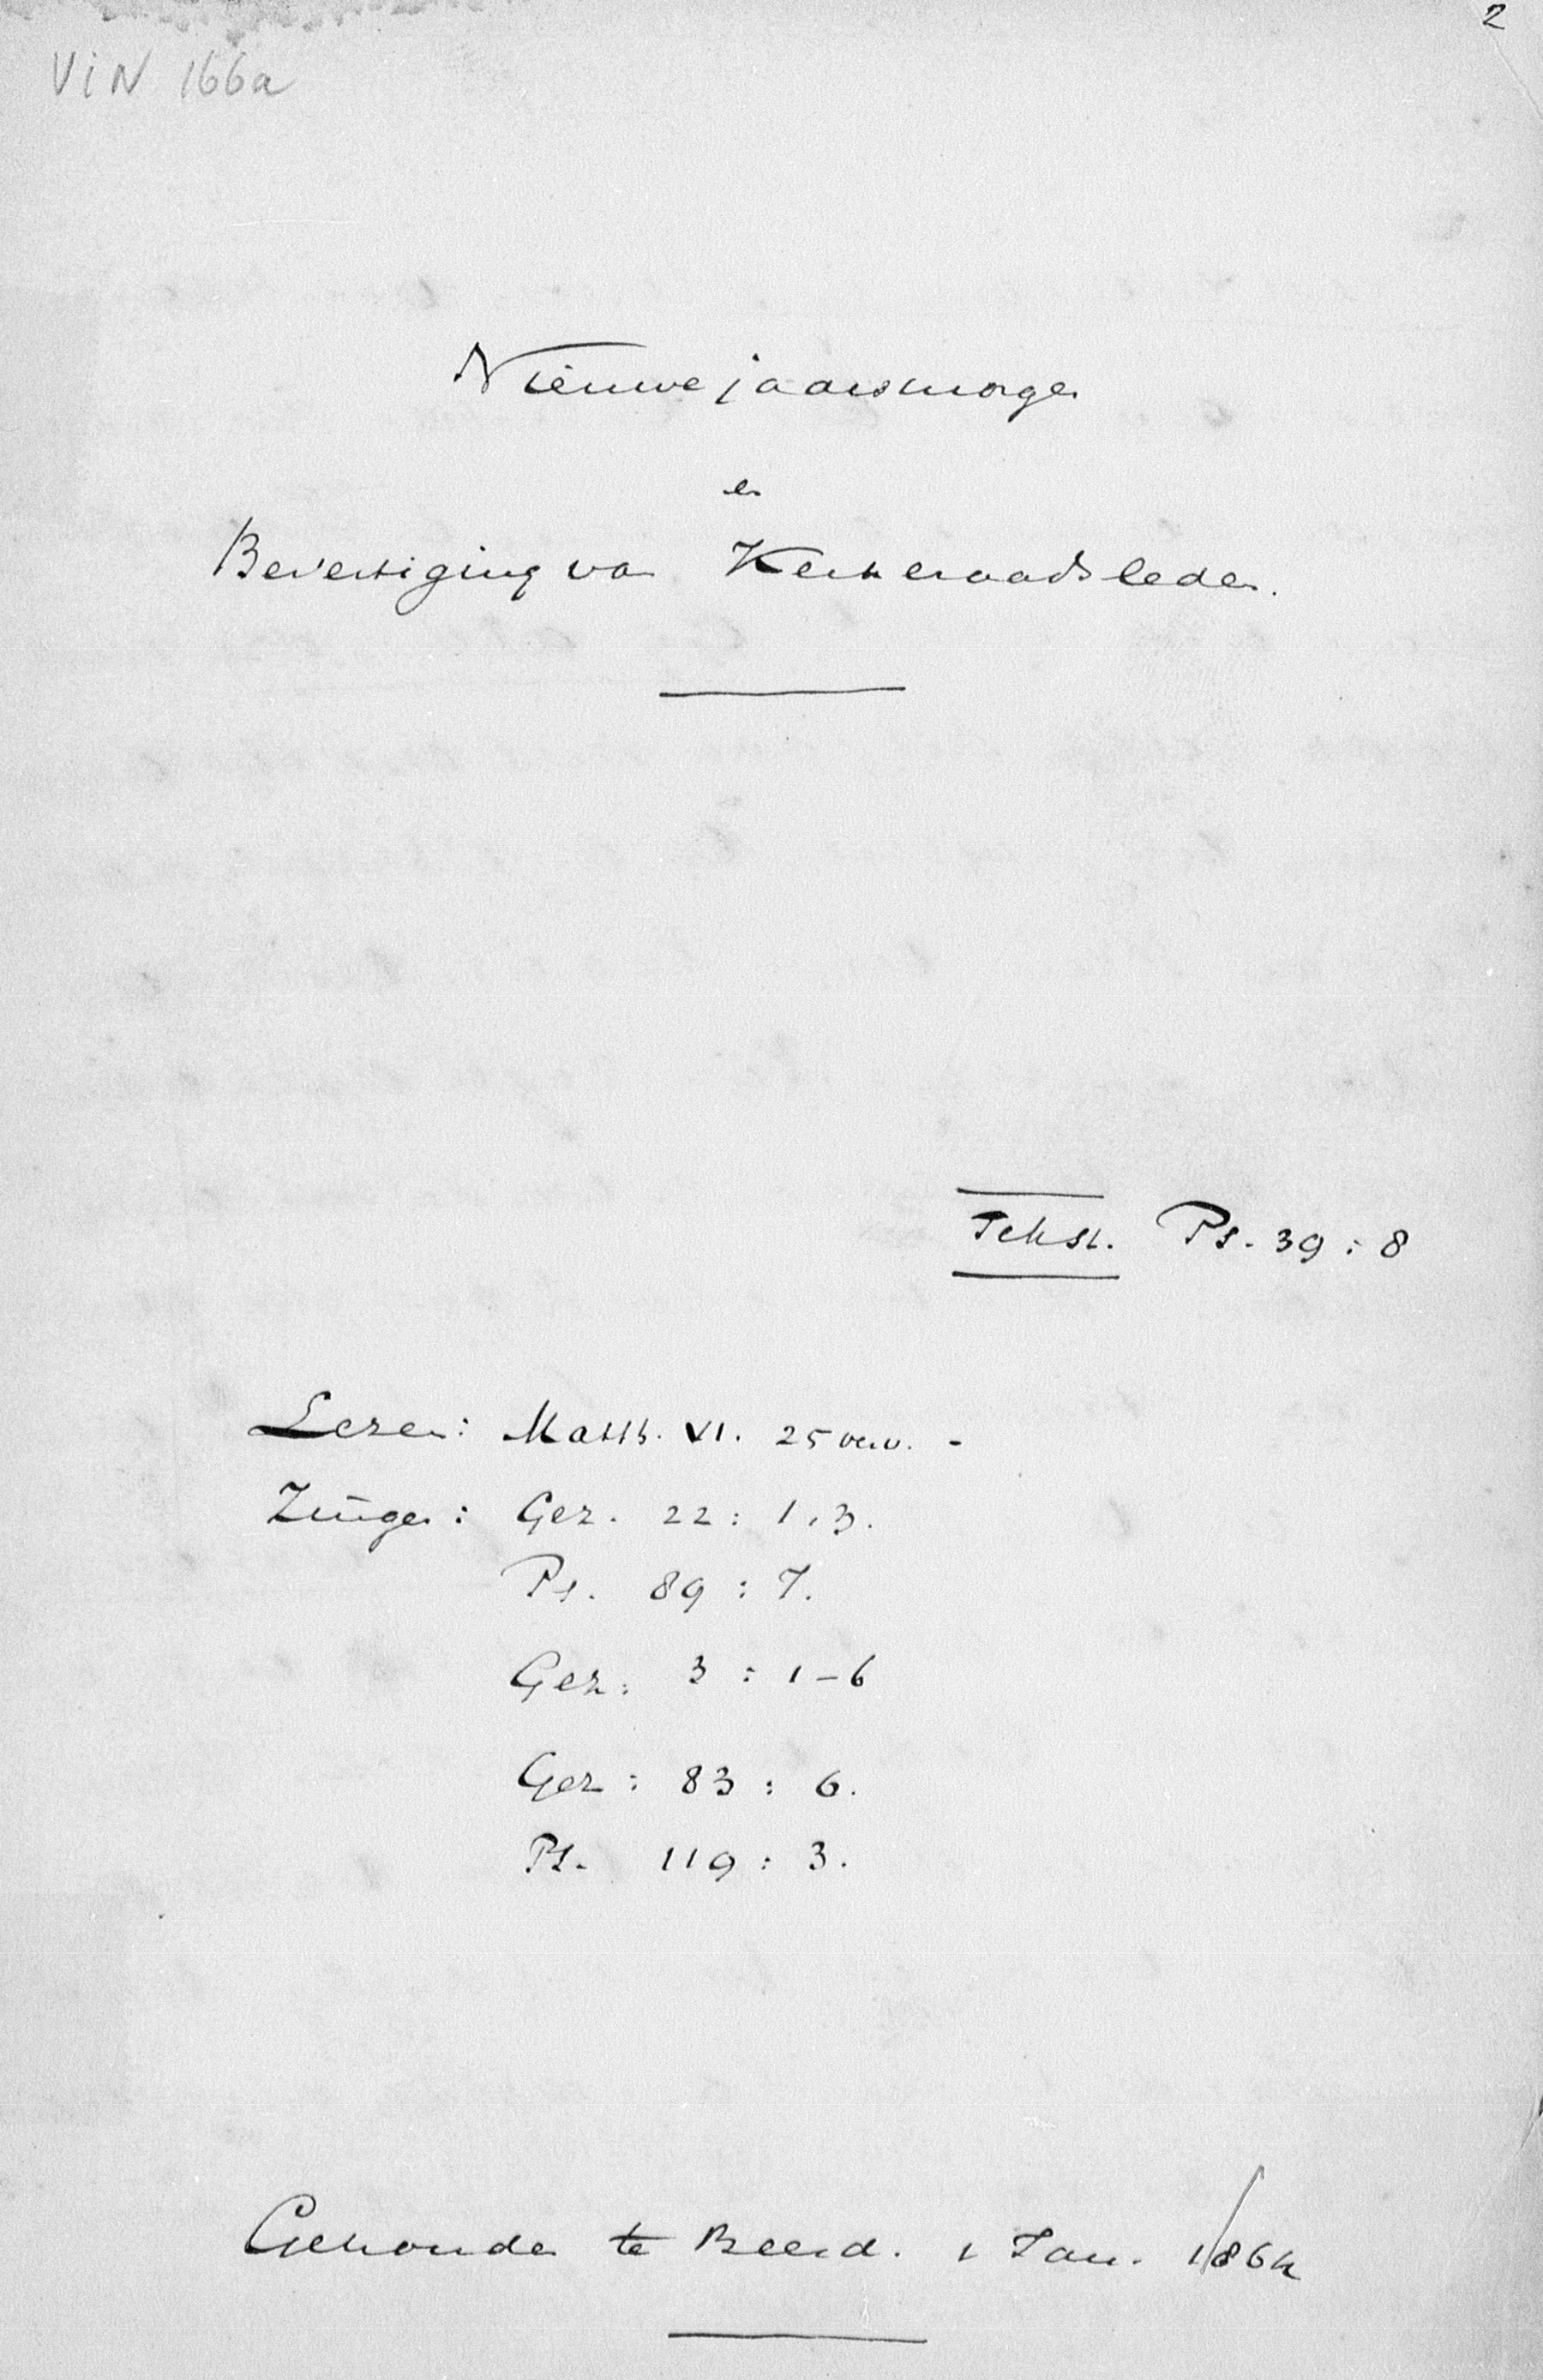 2
VIN 166a
Nieuwejaarsmorgen
en
Bevestiging van Kerkeraadsleden.
Tekst. Ps. 39 : 8
Lezen: Matth. VI. 25 verv. -
Zingen: Gez. 22 : 1, 3.
Ps. 89 : 7.
Gez: 3 : 1-6
Gez : 83 : 6.
Ps. 119 : 3.
Gehouden te Beesd. 1 Jan. 1864